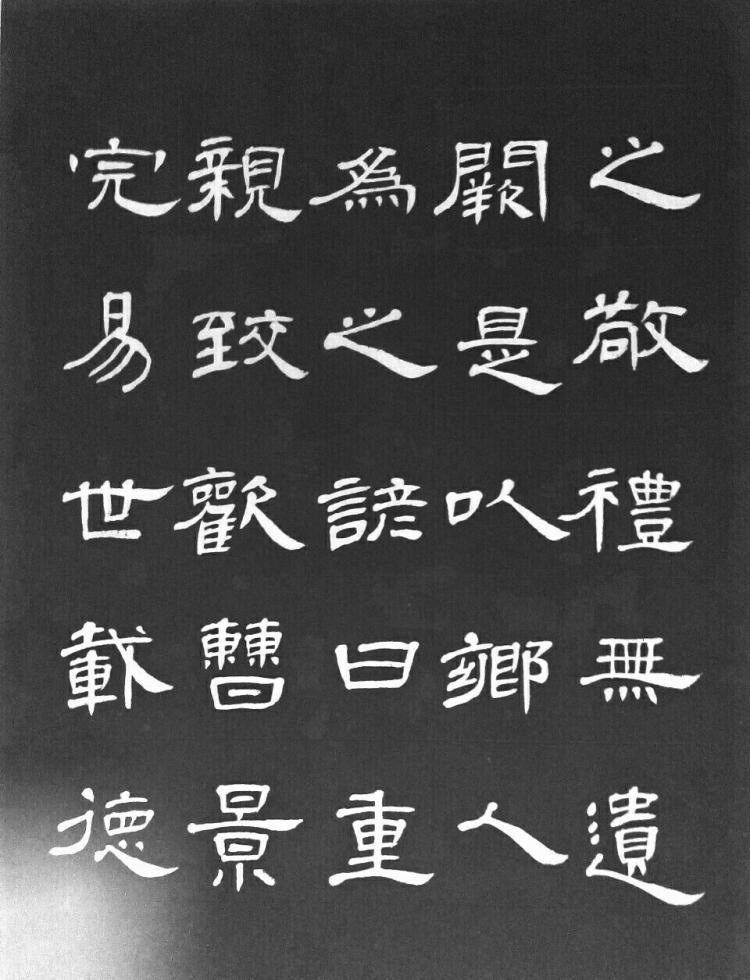 之敬禮無遺
闕是以鄉人
為之諺曰重
親致歡曹景
完易世載德